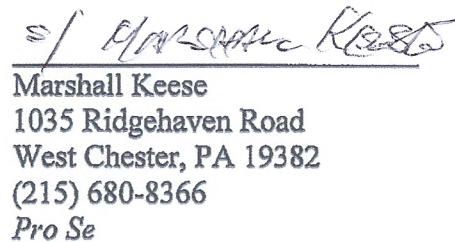 s/ Marshall Keese
Marshall Keese
1035 Ridgehaven Road
West Chester, PA 19382
(215) 680-8366
Pro Se